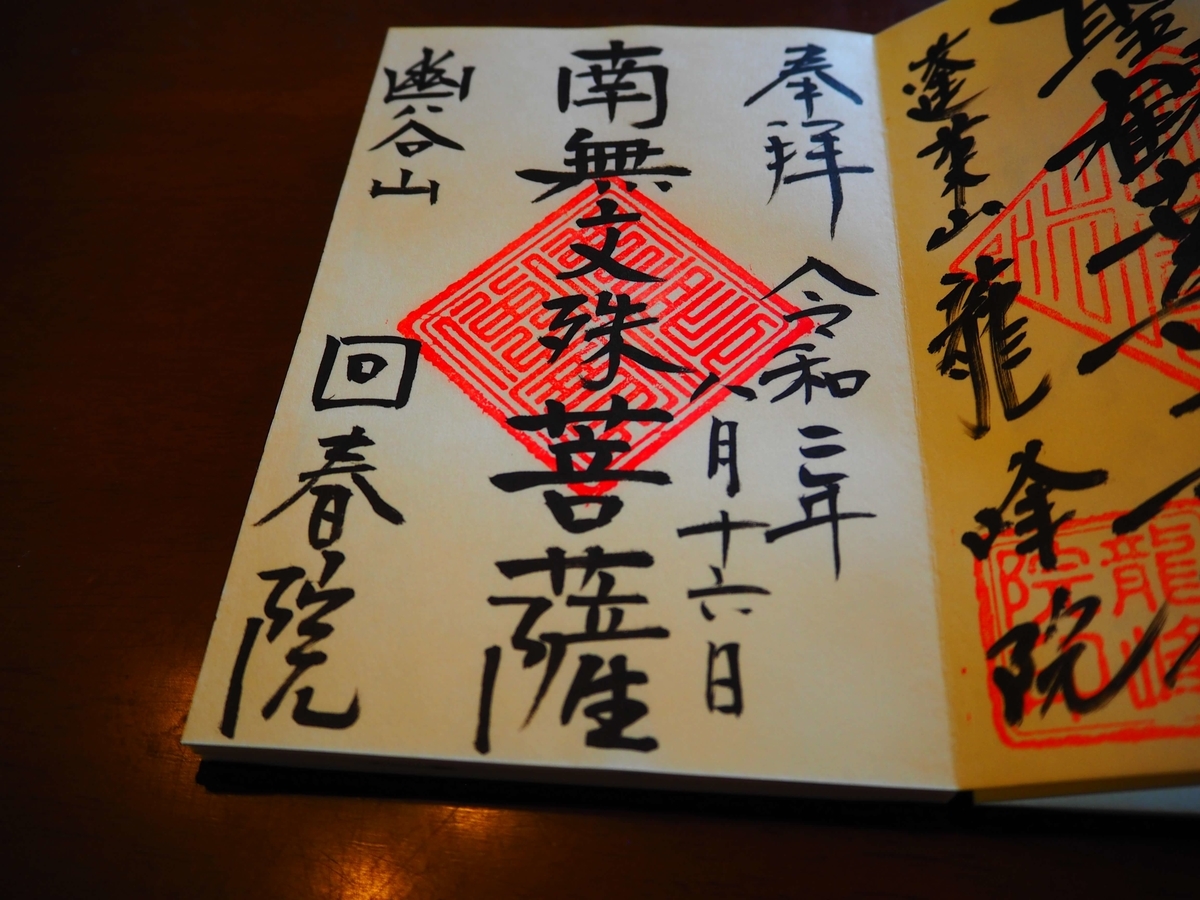 聖観
蓬莱山 龍峰院
奉拝 令和二年
八月十六日
南無文殊菩薩
幽谷山 回春院